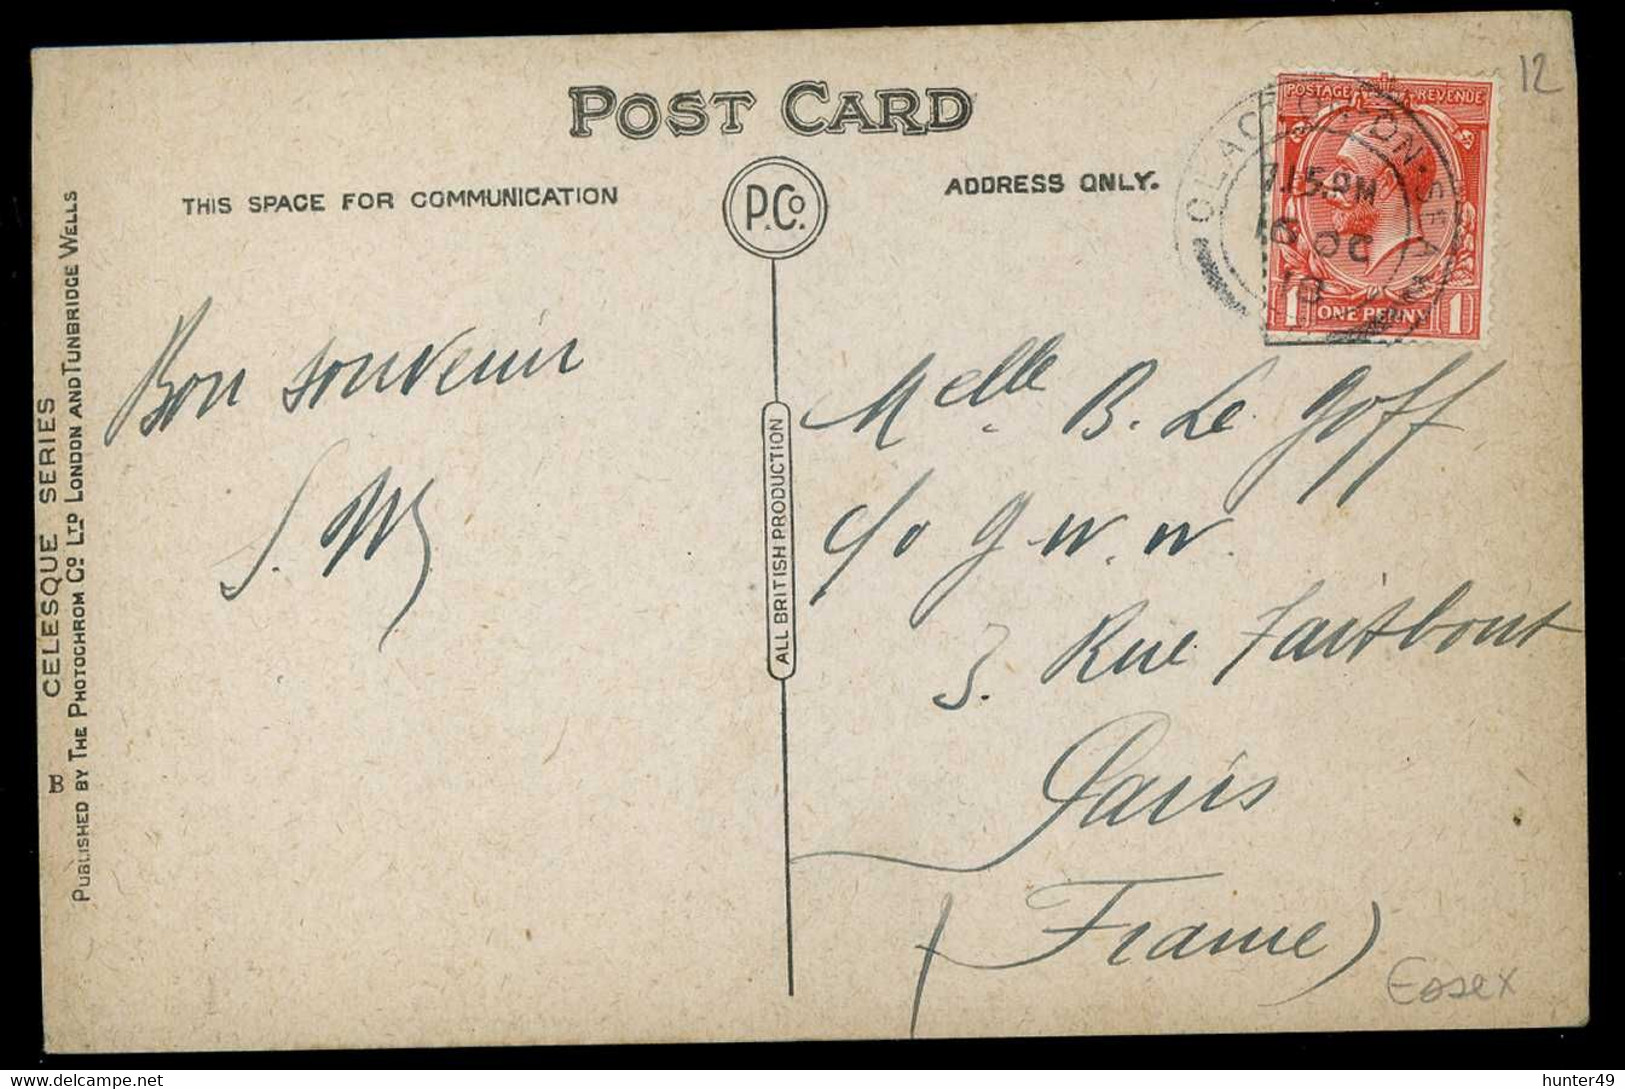 12
POST CARD
THIS SPACE FOR COMMUNICATION
P.Co.
ADDRESS ONLY.
POSTAGE REVENUE
ONE PENNY
1 1
CLACTON-ON-SEA
7.15 PM
OC
Bon souvenir
S. M
Melle B. Le Goff
c/o G. W. W.
3. Rue Taitbout
Paris
(France)
Essex
ALL BRITISH PRODUCTION
CELESQUE SERIES
B
PUBLISHED BY THE PHOTOCHROM CO LTD LONDON AND TUNBRIDGE WELLS
hunter49